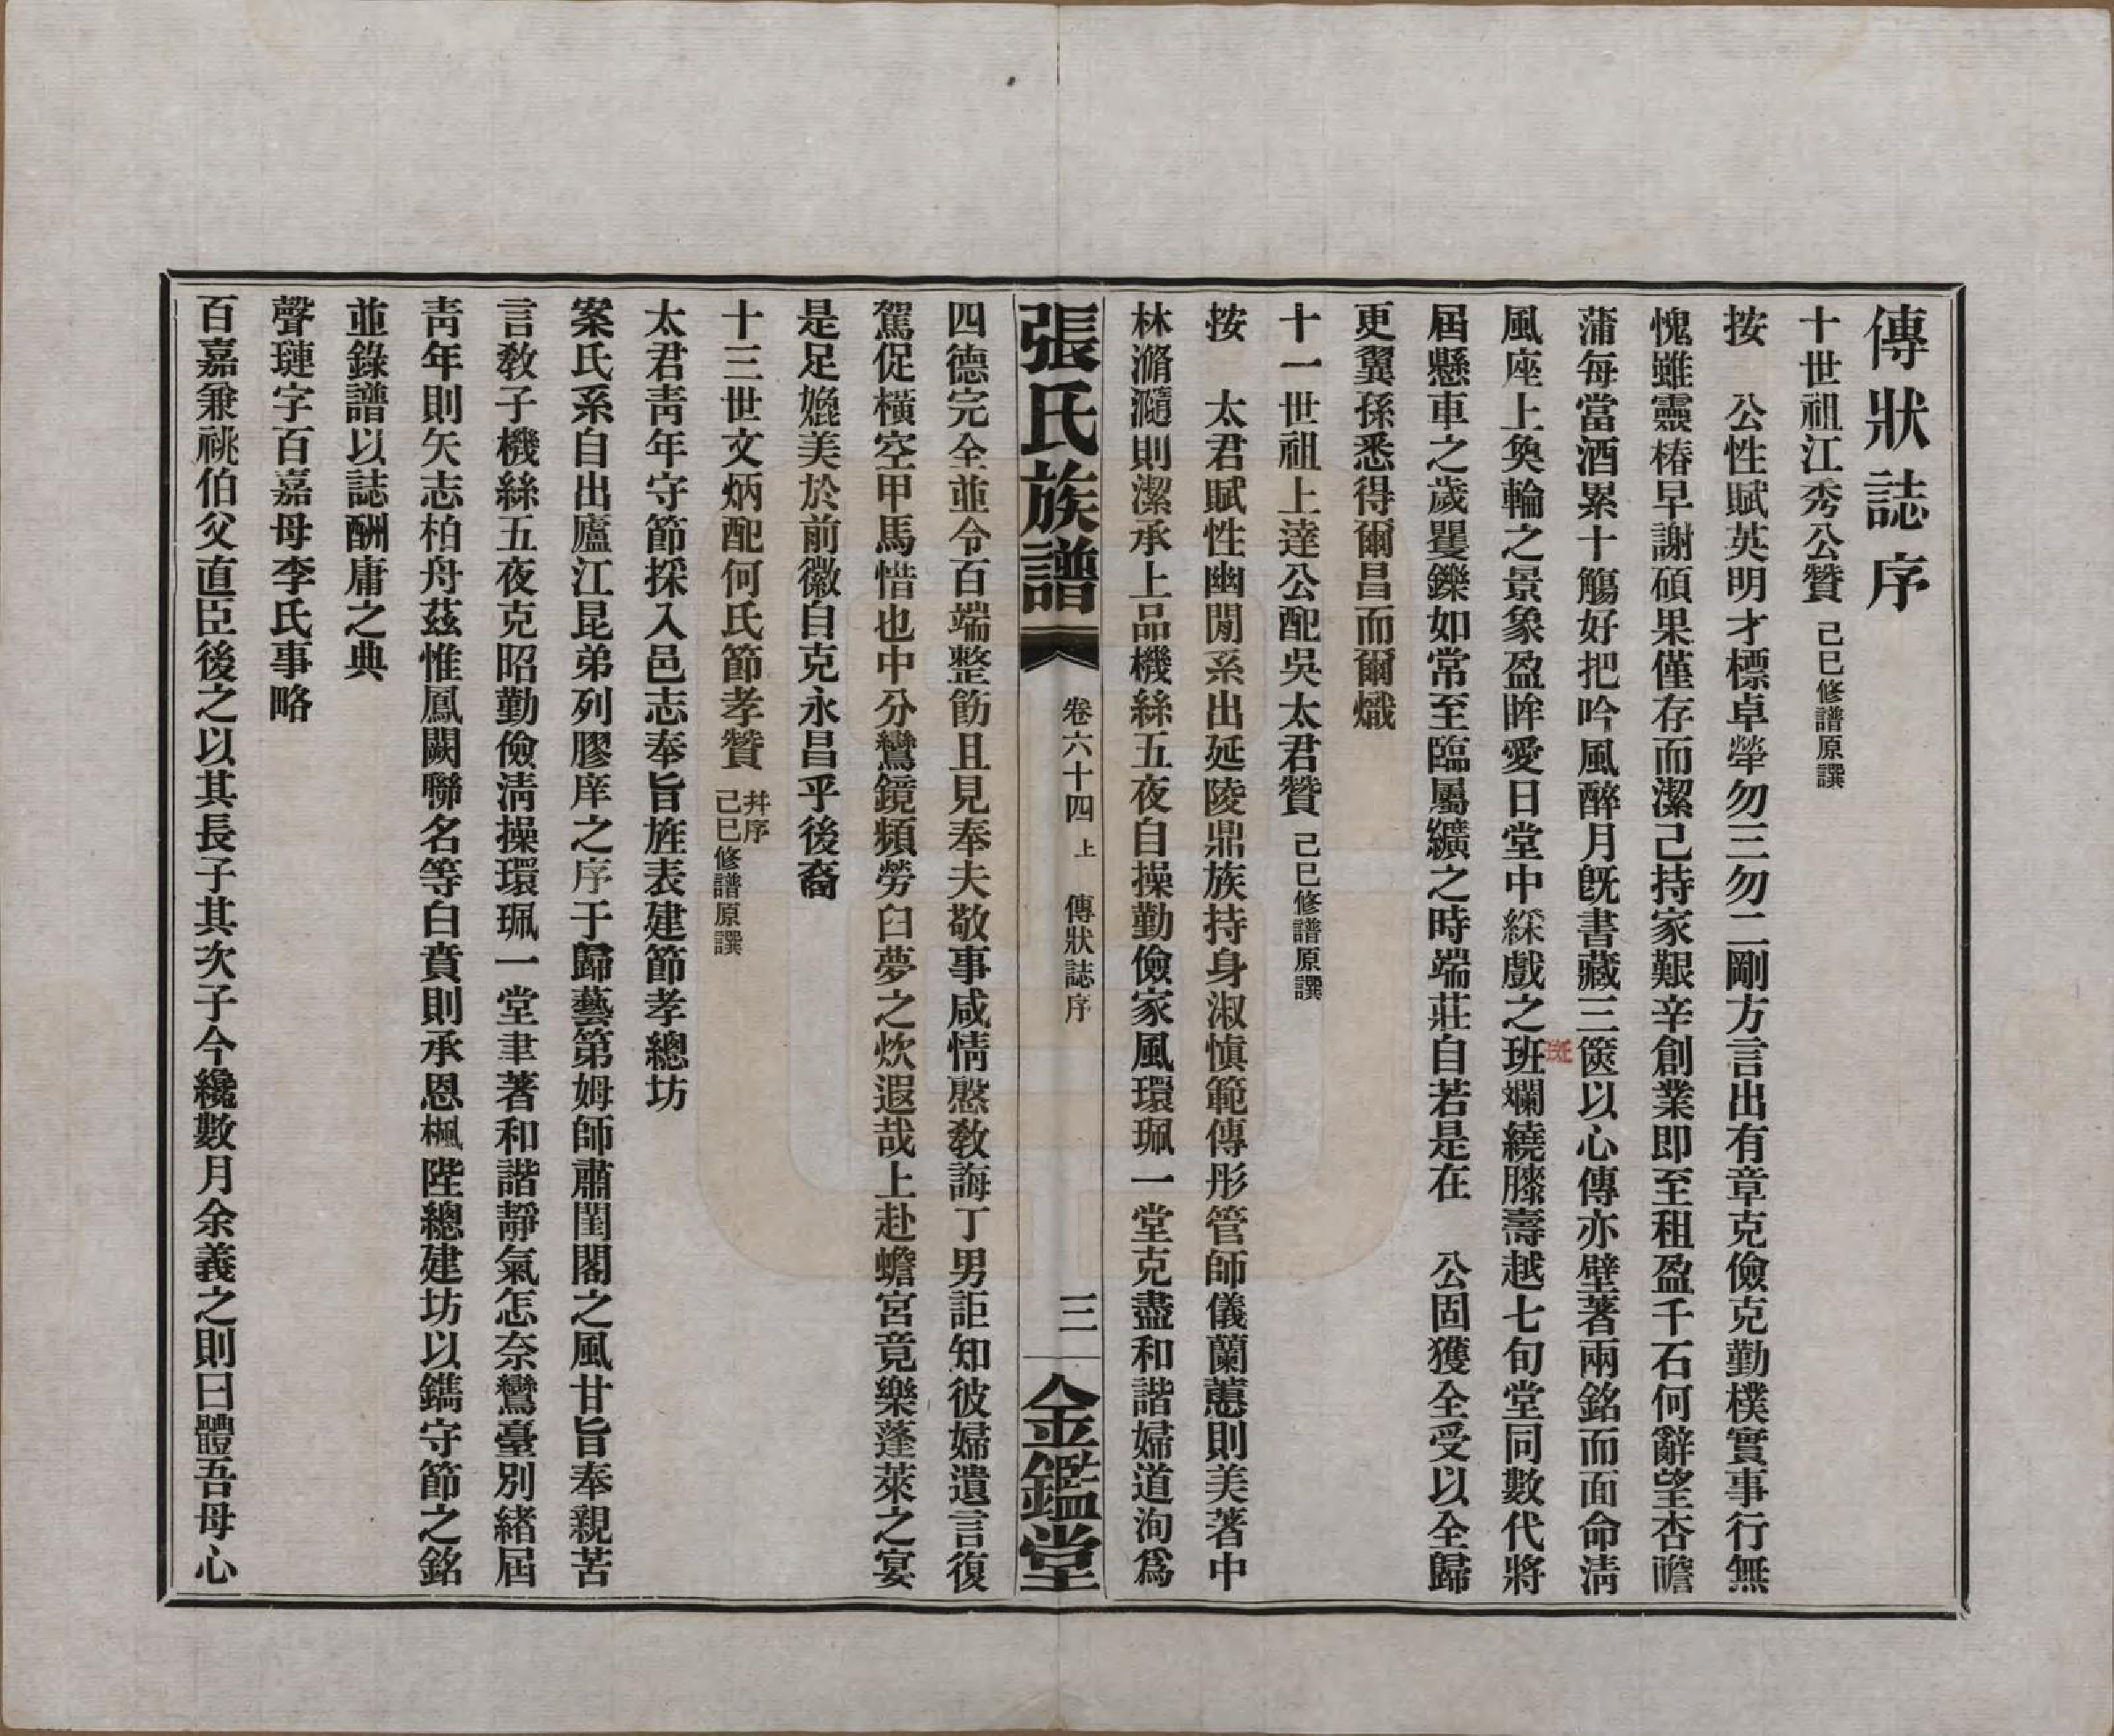 傳狀誌序
十世祖江秀公贊 己巳修譜原譔
按　公性賦英明才標卓犖勿三勿二剛方言出有章克儉克勤樸實事行無
愧雖靈椿早謝碩果僅存而潔己持家艱辛創業即至租盈千石何辭望杏瞻
蒲每當酒累十觴好把吟風醉月旣書藏三篋以心傳亦壁著兩銘而面命淸
風座上奐輪之景象盈眸愛日堂中綵戲之班斕繞膝壽越七旬堂同數代將
斑
屆懸車之歲矍鑠如常至臨屬纊之時端莊自若是在　公固獲全受以全歸
更翼孫悉得爾昌而爾熾
十一世祖上達公配吳太君贊 己巳修譜原譔
按　太君賦性幽閒系出延陵鼎族持身淑愼範傳彤管師儀蘭蕙則美著中
林滫瀡則潔承上品機絲五夜自操勤儉家風環珮一堂克盡和諧婦道洵爲
張氏族譜　卷六十四上　傳狀誌序　三　金鑑堂
四德完全並令百端整飭且見奉夫敬事咸情慇敎誨丁男詎知彼婦遺言復
駕促橫空甲馬惜也中分鸞鏡頻勞臼夢之炊遐哉上赴蟾宮竟樂蓬萊之宴
是足媲美於前徽自克永昌乎後裔
十三世文炳配何氏節孝贊 幷序 己巳修譜原譔
太君靑年守節採入邑志奉旨旌表建節孝總坊
案氏系自出廬江昆弟列膠庠之序于歸藝第姆師肅閨閣之風甘旨奉親苦
言敎子機絲五夜克昭勤儉淸操環珮一堂聿著和諧靜氣怎奈鸞臺別緒屆
靑年則矢志柏舟茲惟鳳闕聯名等白賁則承恩楓陛總建坊以鐫守節之銘
並錄譜以誌酬庸之典
聲璉字百嘉母李氏事略
百嘉兼祧伯父直臣後之以其長子其次子今纔數月余義之則曰體吾母心